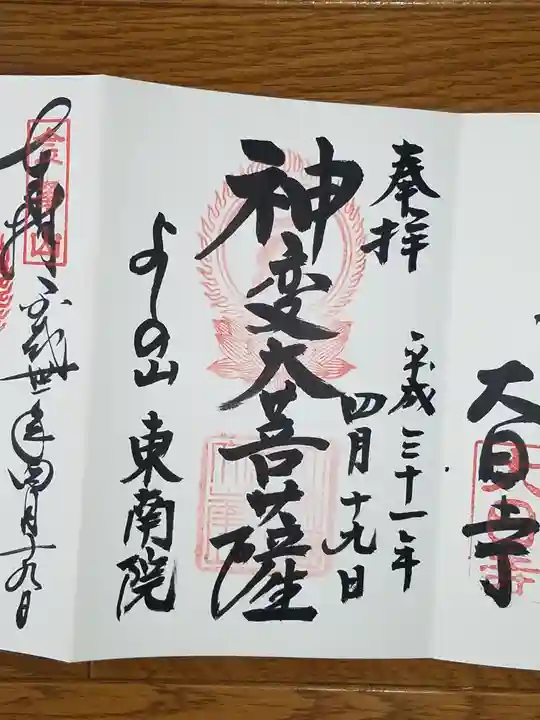 大日寺
奉拝
平成三十一年
四月十九日
神変大菩薩
よしの山
東南院
奉拝
平成卅一年四月十九日
金峯山